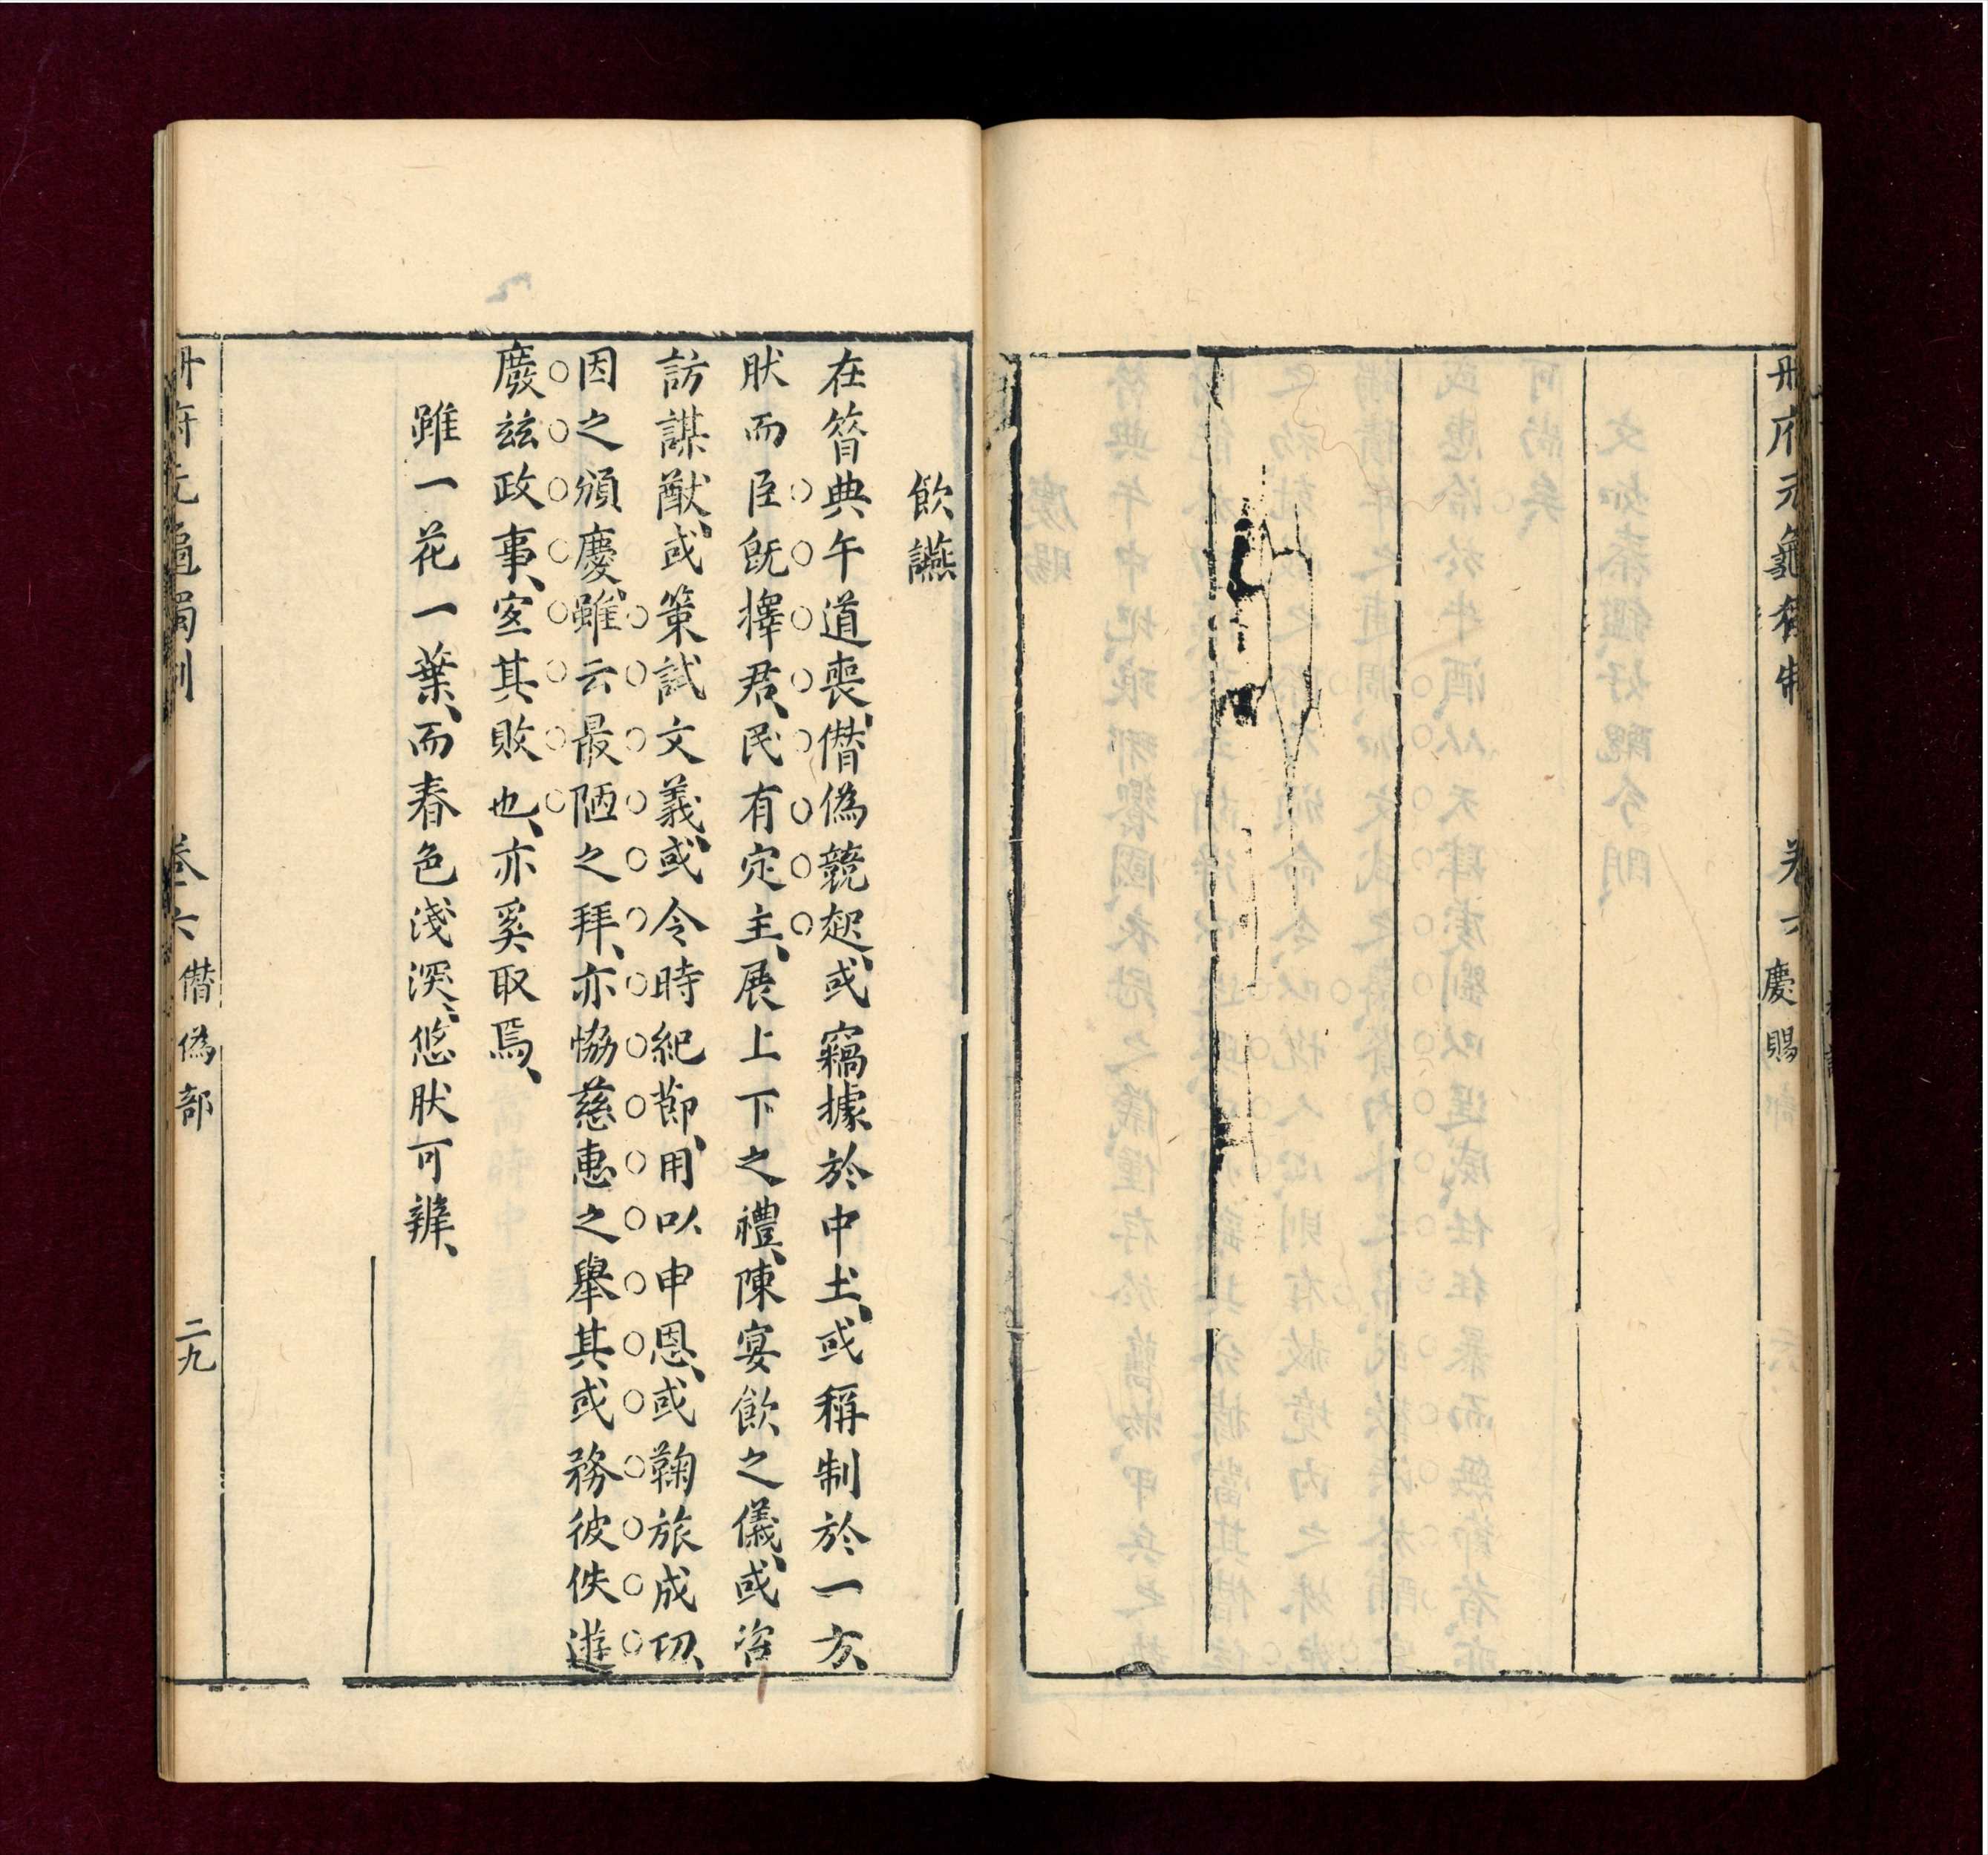 冊府元龜獨制　卷六　慶賜
飲讌
在簪典午道喪、僣偽競起、或竊據於中土、或稱制於一方、
肰而臣既擇君、民有定主、展上下之禮、陳宴飲之儀、或咨
訪謀猷、或策試文義、或令時紀節、用以申恩、或鞠旅成功、
因之頒慶、雖云最陋之拜、亦恊慈惠之舉其或務彼佚遊
廢玆政事、室其敗也、亦奚取焉、
雖一花一葉、而春色淺深、悠肰可辨、
冊府元龜獨制　卷六　僣偽部　二九